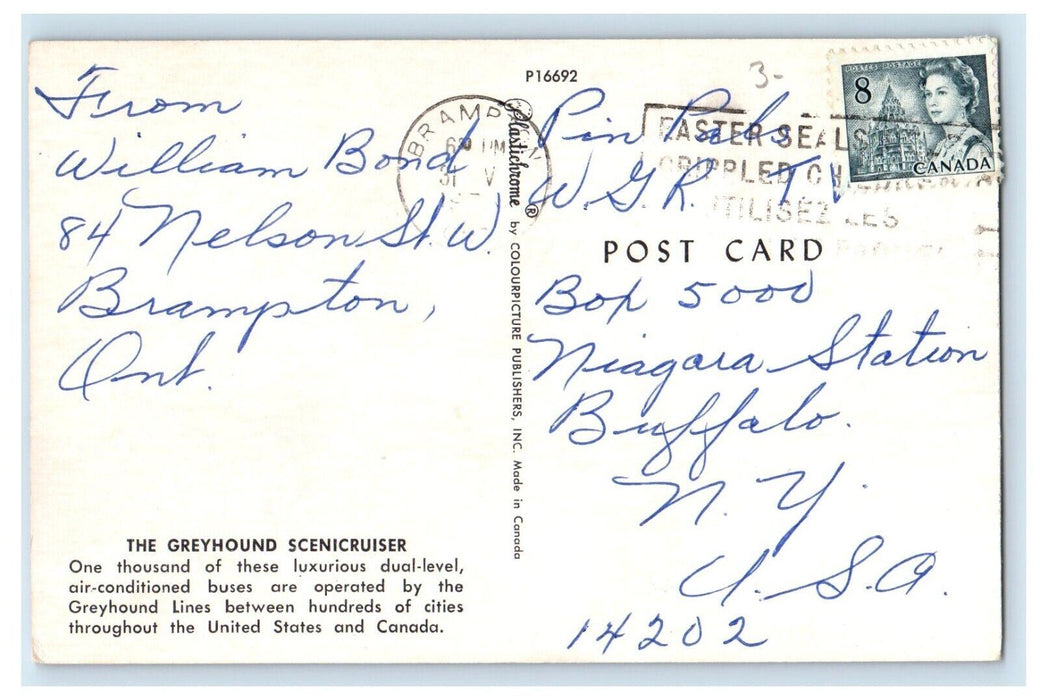 From
William Bond
84 Nelson St. W.
Brampton,
Ont.
THE GREYHOUND SCENICRUISER
One thousand of these luxurious dual-level,
air-conditioned buses are operated by the
Greyhound Lines between hundreds of cities
throughout the United States and Canada.
Plastichrome ® by COLOURPICTURE PUBLISHERS, INC. Made in Canada
P16692
3-
BRAMPTON
PM
31 V
EASTER SEALS
CRIPPLED CHILDREN
UTILISEZ LES
POSTES POSTAGE
8
CANADA
POST CARD
Pin Pals
W. G. R. T V
Box 5000
Niagara Station
Buffalo.
N. Y.
U. S. A.
14202